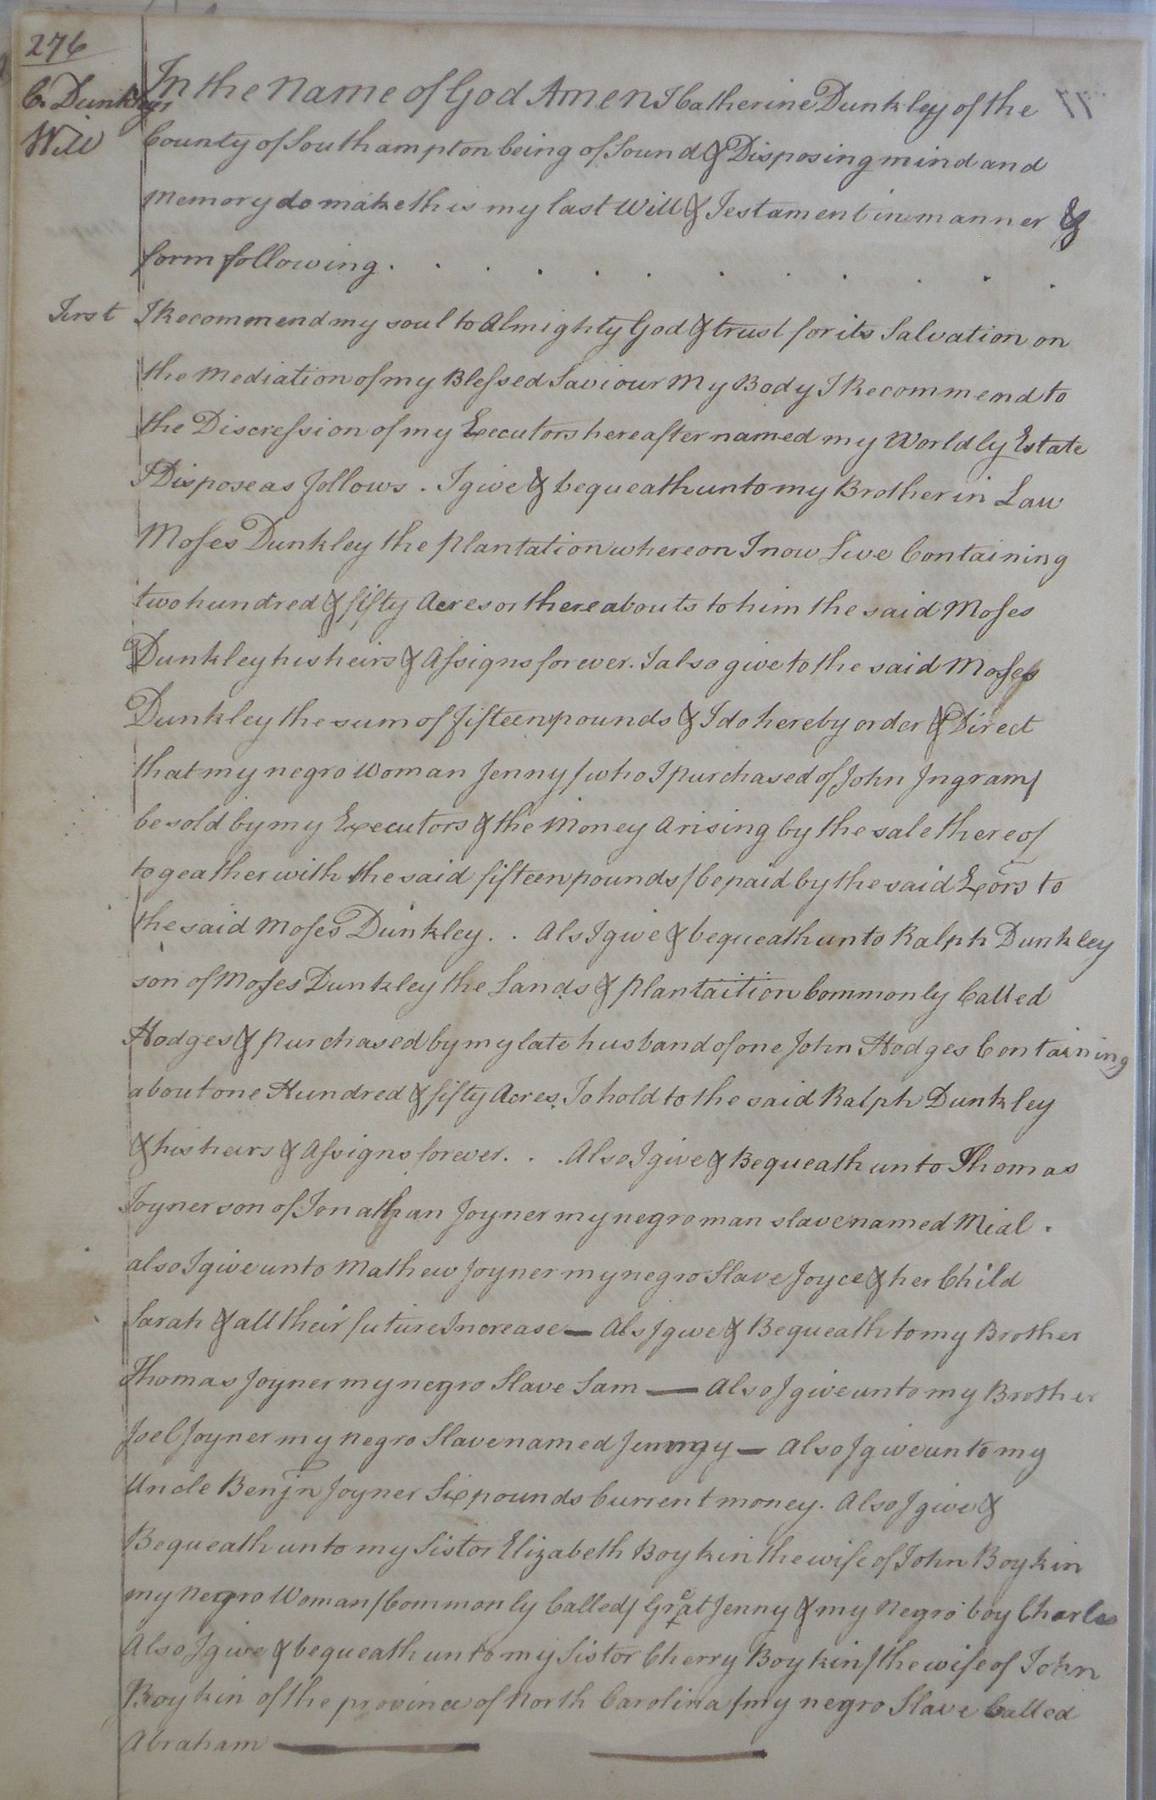 276
C. Dunkleys
Will
In the Name of God Amen I Catherine Dunkley of the
County of Southampton being of Sound & Disposing mind and
memory do make this my last Will & Testament in manner &
form following . . . . . . . . . .
First I Recommend my soul to Almighty God & trust for its Salvation on
the Mediation of my Blessed Saviour My Body I Recommend to
the Discression of my Executors hereafter named my Worldly Estate
I Dispose as follows . I give & bequeath unto my Brother in Law
Moses Dunkley the Plantation whereon I now Live Containing
two hundred & fifty Acres or thereabouts to him the said Moses
Dunkley his heirs & Assigns forever. I also give to the said Moses
Dunkley the sum of fifteen pounds & I do hereby order & Direct
that my negro Woman Jenny /who I purchased of John Ingram/
be sold by my Executors & the Money Arising by the sale there of
togeather with the said fifteen pounds /be paid by the said Exōrs to
the said Moses Dunkley . . Als I give & bequeath unto Ralph Dunkley
son of Moses Dunkley the Lands & Plantaition Commonly Called
Hodges & Purchased by my late husband of one John Hodges Containing
about one Hundred & fifty Acres. To hold to the said Ralph Dunkley
& his heirs & Assigns forever . . . Also I give & Bequeath unto Thomas
Joyner son of Jonathan Joyner my negro man slave named Mial .
also I give unto Mathew Joyner my negro Slave Joyce & her Child
Sarah & all their future Increase — Als I give & Bequeath to my Brother
Thomas Joyner my negro Slave Sam — Also I give unto my Brother
Joel Joyner my negro Slave named Jemmy — Also I give unto my
Uncle Benjn Joyner Six pounds Current money. Also I give &
Bequeath unto my Sistor Elizabeth Boykin the wife of John Boykin
my Negro Woman /Commonly Called/ Great Jenny & my Negro boy Charles
Also I give & bequeath unto my Sistor Cherry Boykin /the wife of John
Boykin of the province of North Carolina/ my negro Slave Called
Abraham